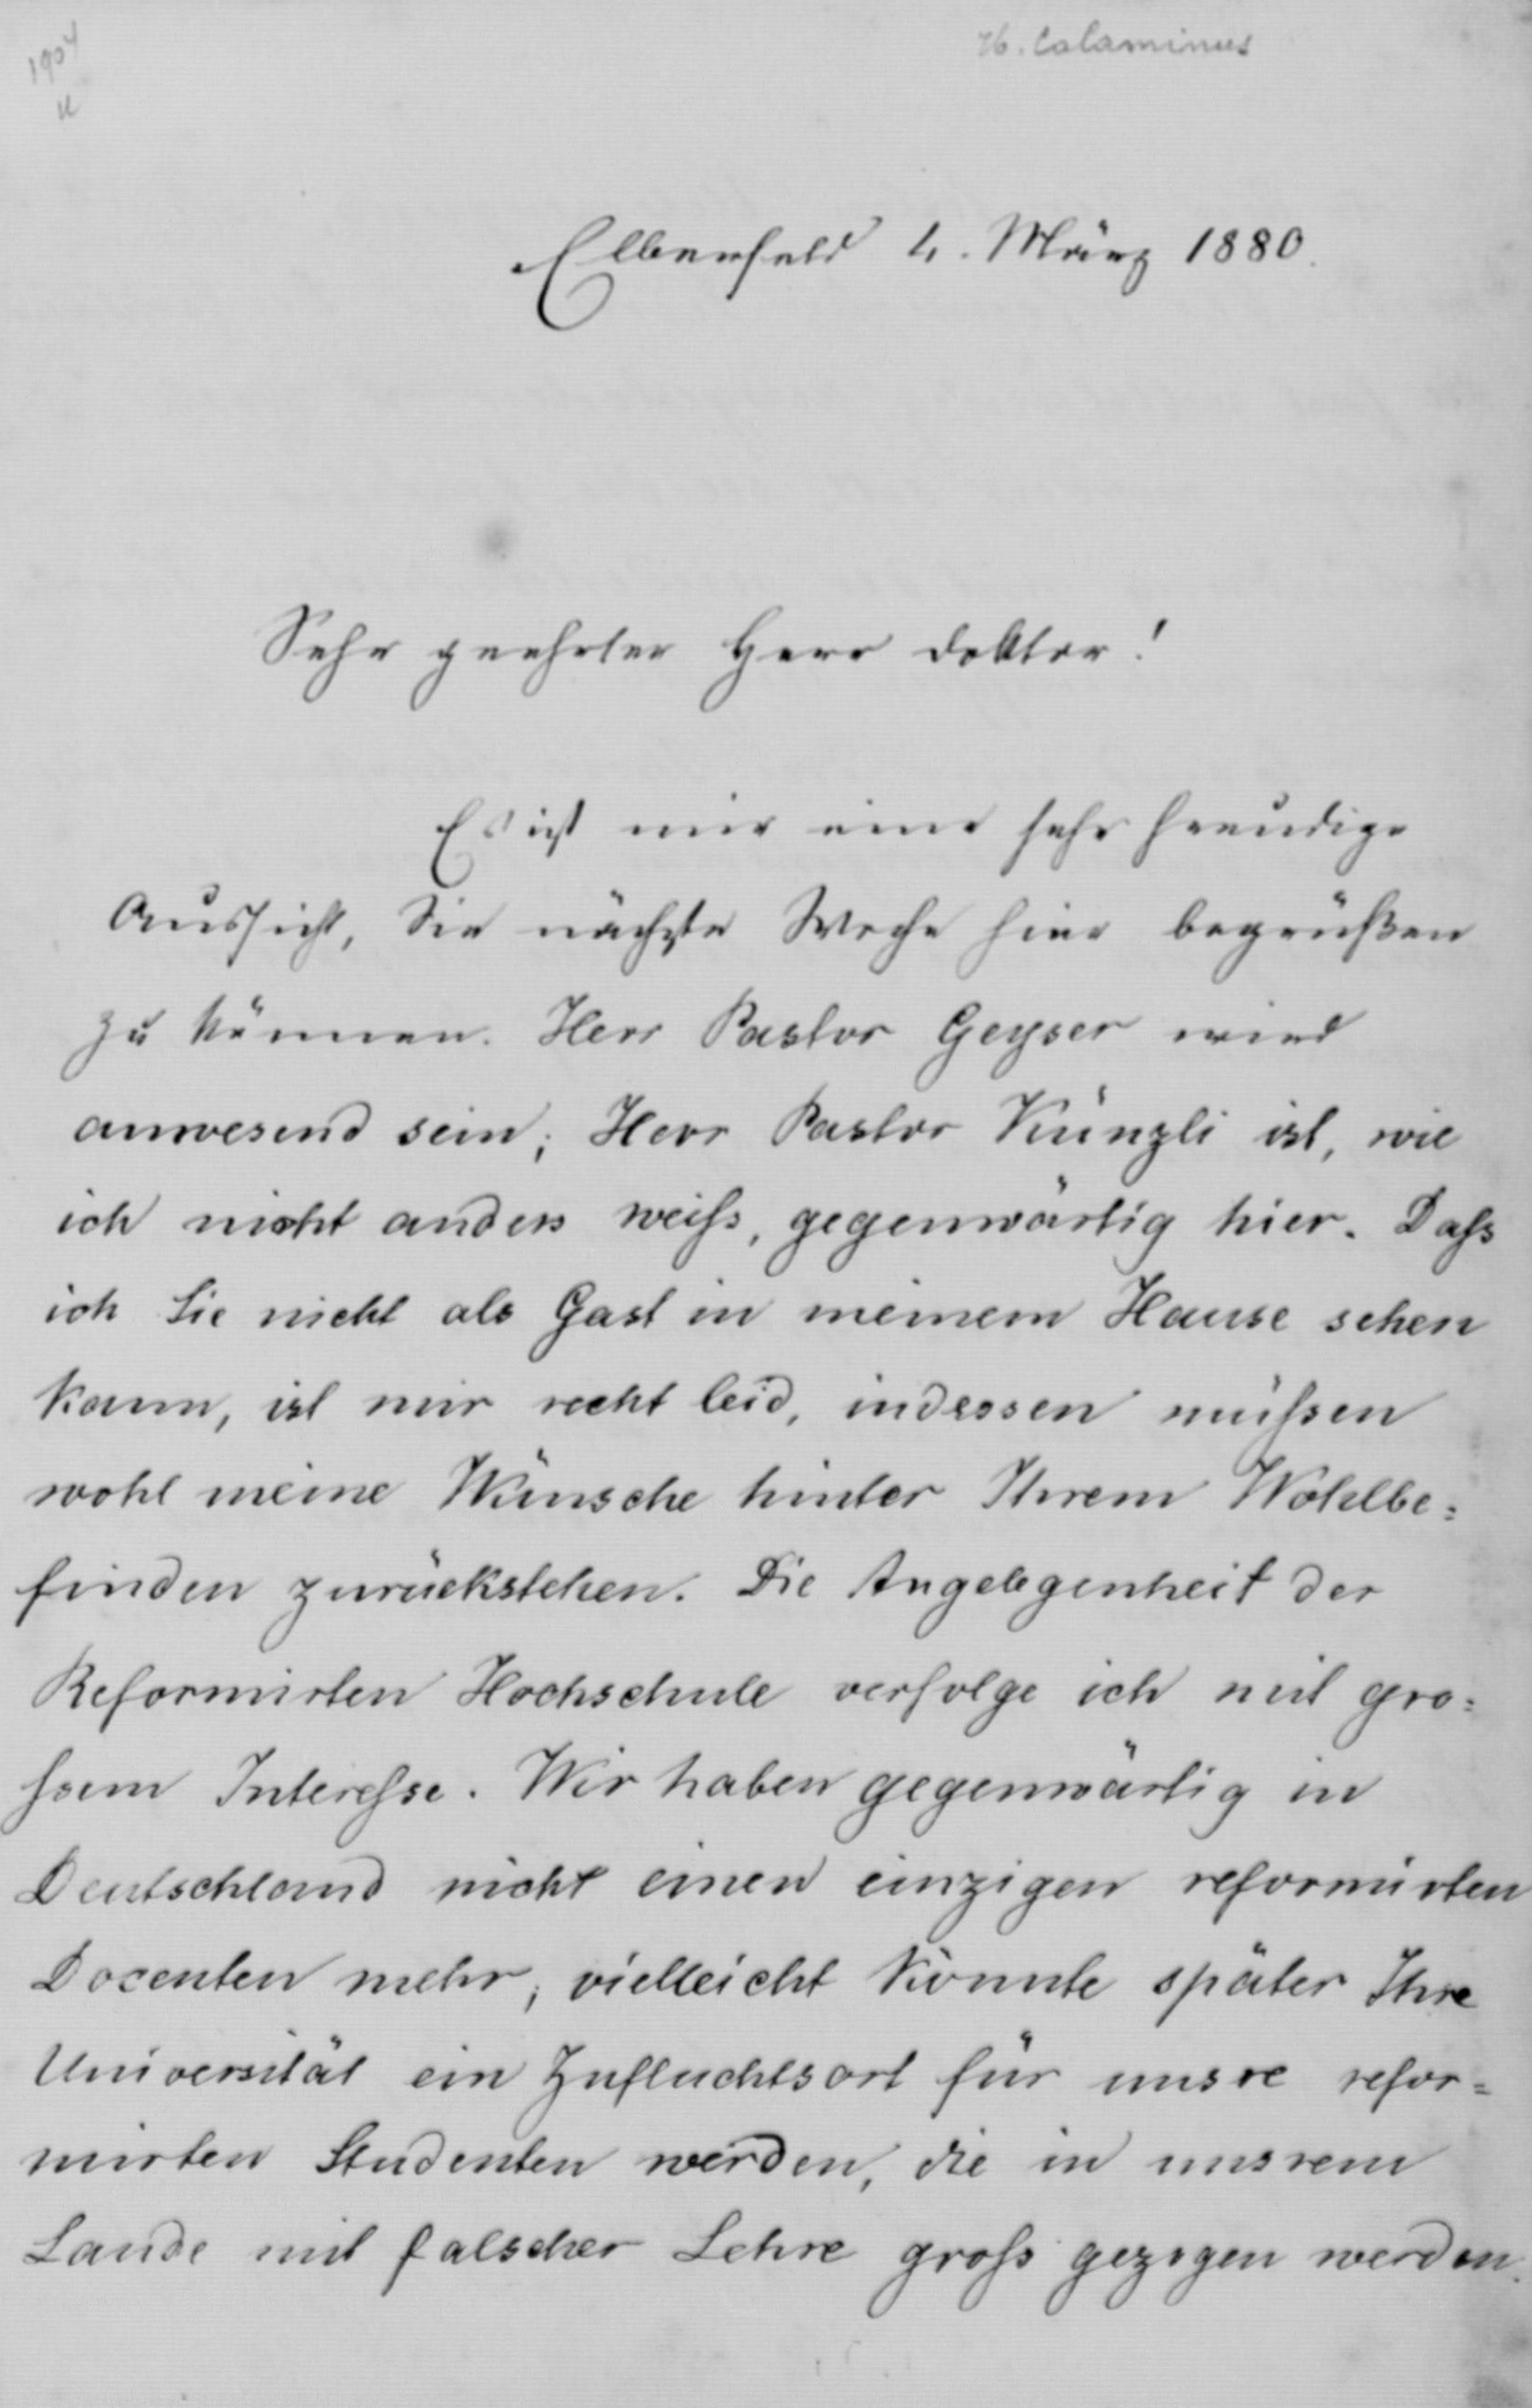 1904
H. Calaminus
Elberfeld 4. März 1880.
Sehr geehrter Herr Doktor!
Es ist mir eine sehr freudige
Aussicht, Sie nächste Woche hier begrüßen
zu können. Herr Pastor Geyser wird
anwesend sein; Herr Pastor Künzli ist, wie
ich nicht anders weiss, gegenwärtig hier. Dass
ich Sie nicht als Gast in meinem Hause sehen
kann, ist mir recht leid, indessen müssen
wohl meine Wünsche hinter Ihrem Wohlbe=
finden zurückstehen. Die Angelegenheit der
Reformirten Hochschule verfolge ich mit gro=
ssem Interesse. Wir haben gegenwärtig in
Deutschland nicht einen einzigen reformirten
Docenten mehr, vielleicht könnte später Ihre
Universität ein Zufluchtsort für unsre refor=
mirten Studenten werden, die in unsrem
Lande mit falscher Lehre gross gezogen werden.